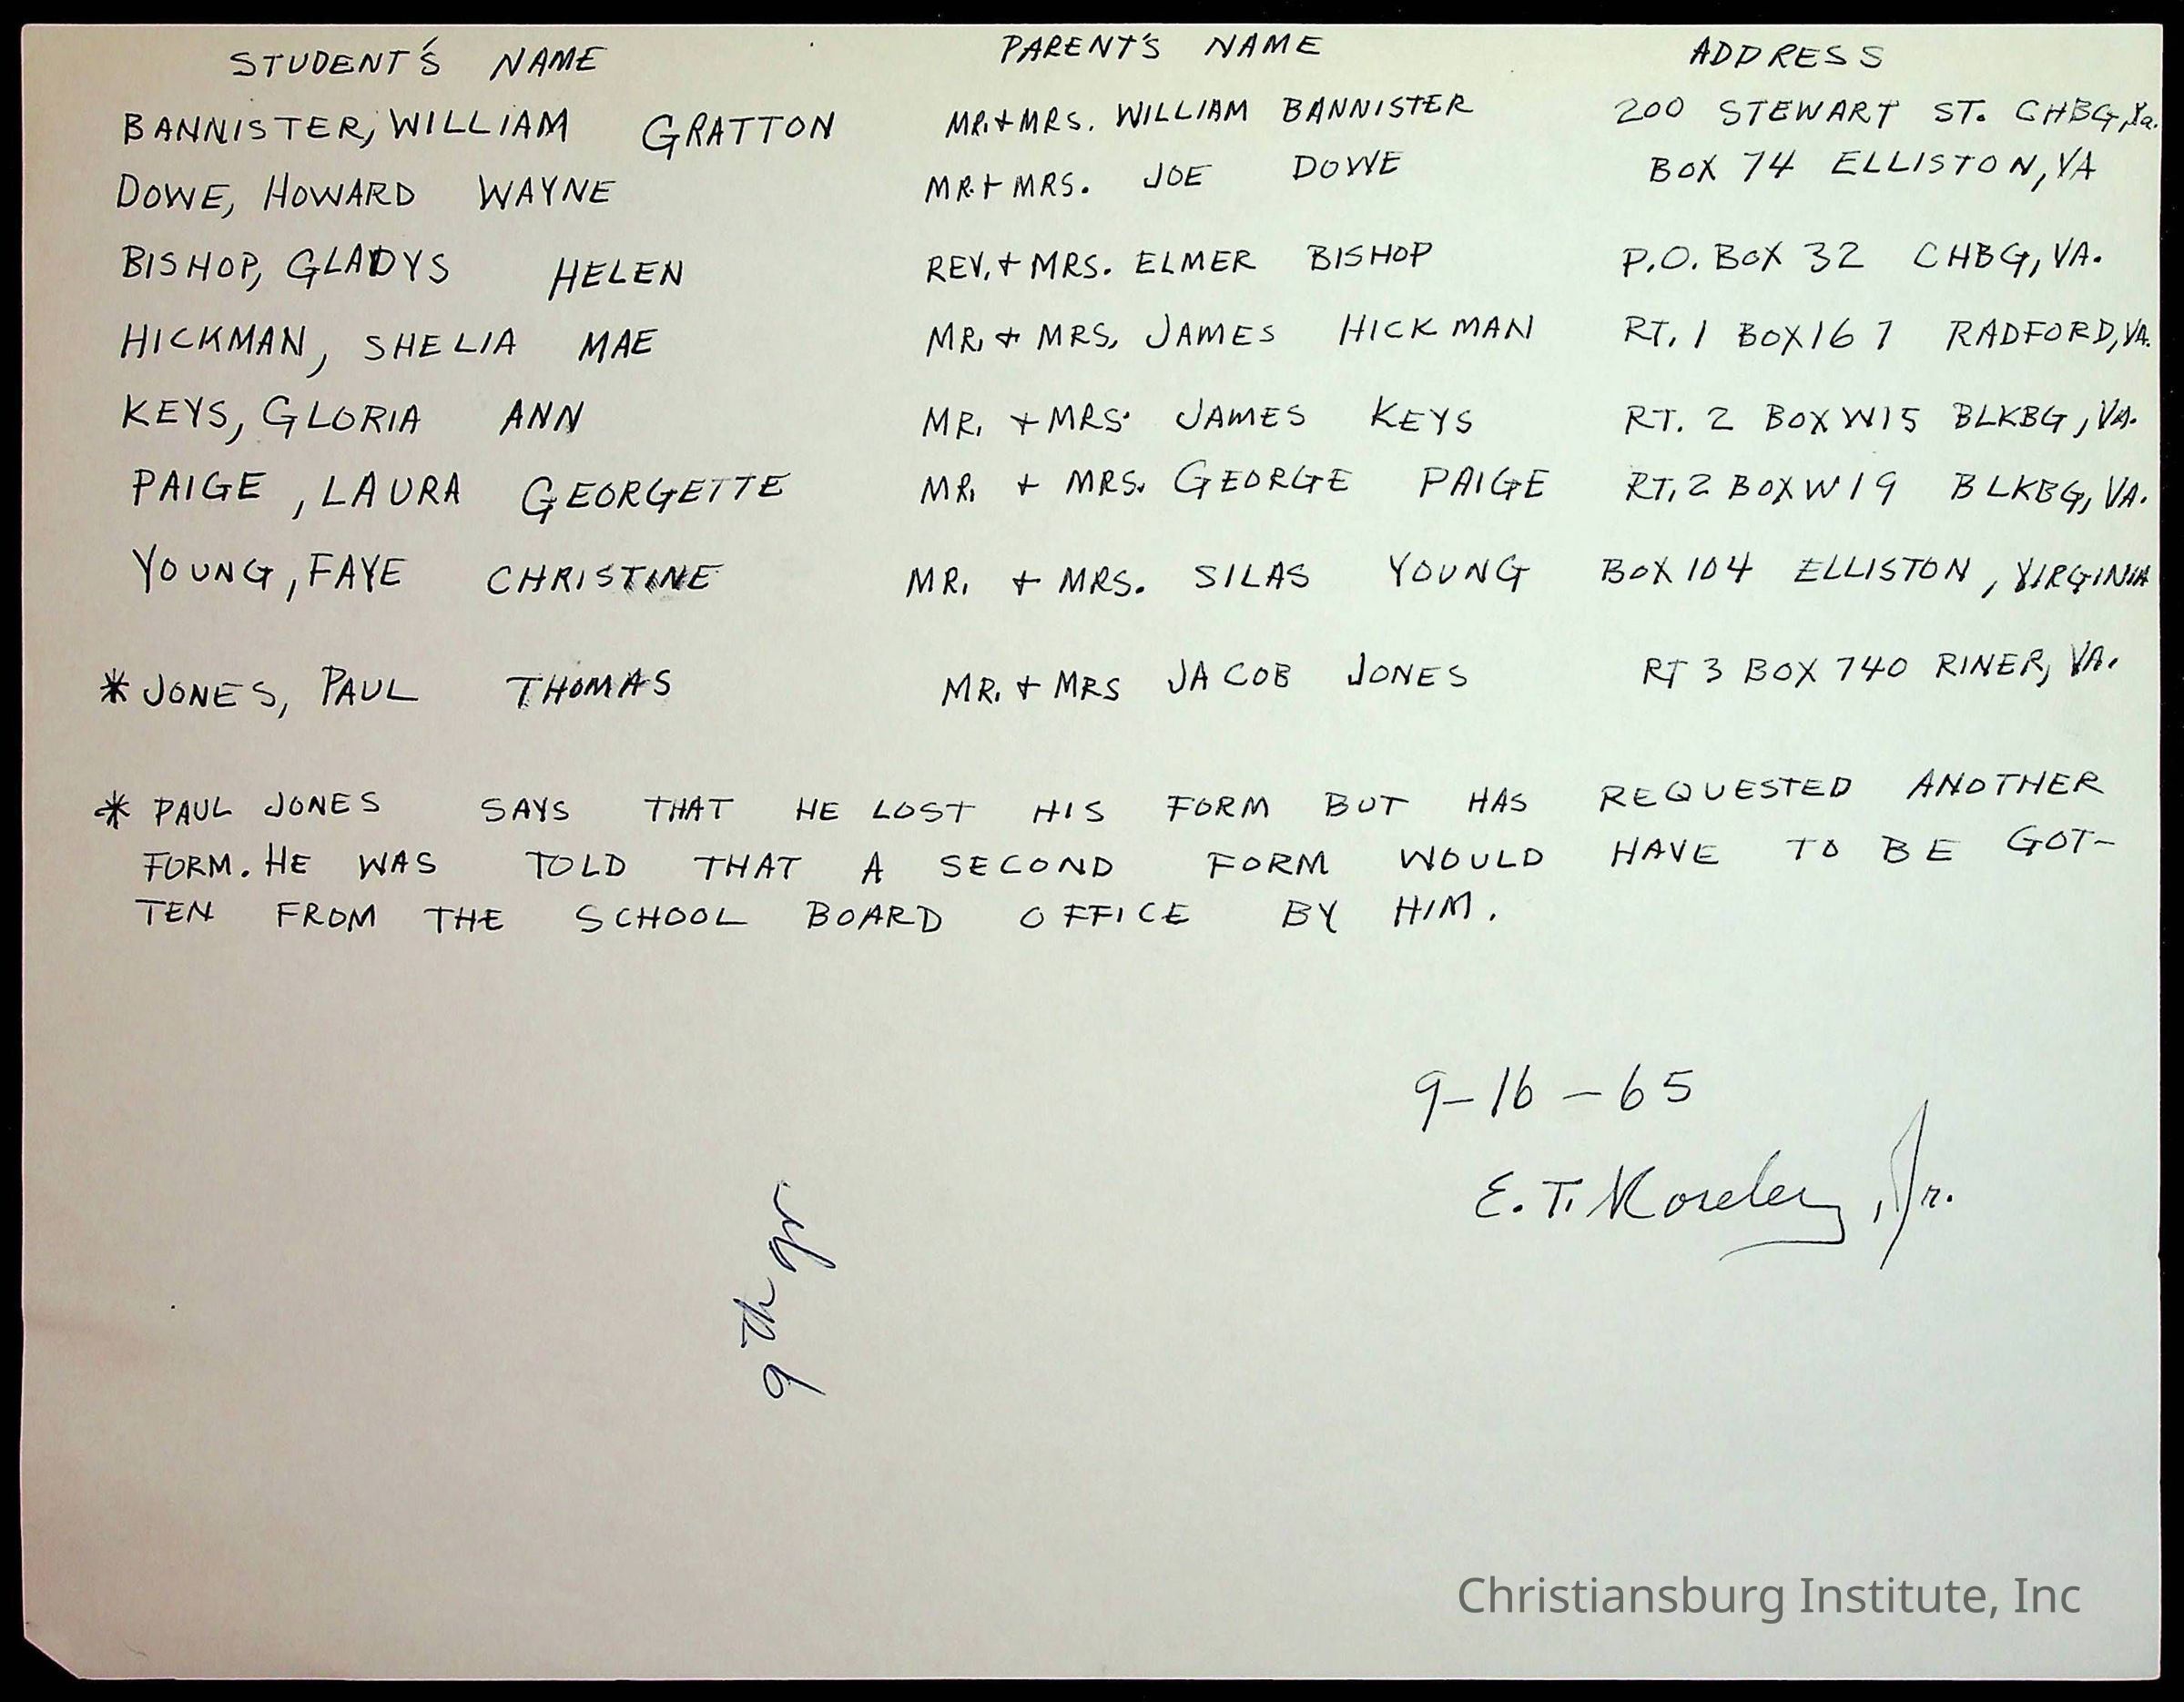 STUDENT'S NAME PARENT'S NAME ADDRESS
BANNISTER, WILLIAM GRATTON MR. + MRS. WILLIAM BANNISTER 200 STEWART ST. CHBG, Va.
DOWE, HOWARD WAYNE MR. + MRS. JOE DOWE BOX 74 ELLISTON, VA
BISHOP, GLADYS HELEN REV. + MRS. ELMER BISHOP P.O. BOX 32 CHBG, VA.
HICKMAN, SHELIA MAE MR. + MRS. JAMES HICKMAN RT. 1 BOX 167 RADFORD, VA.
KEYS, GLORIA ANN MR. + MRS. JAMES KEYS RT. 2 BOX W15 BLKBG, VA.
PAIGE, LAURA GEORGETTE MR. + MRS. GEORGE PAIGE RT. 2 BOX W19 BLKBG, VA.
YOUNG, FAYE CHRISTINE MR. + MRS. SILAS YOUNG BOX 104 ELLISTON, VIRGINIA
* JONES, PAUL THOMAS MR. + MRS JACOB JONES RT 3 BOX 740 RINER, VA.
* PAUL JONES SAYS THAT HE LOST HIS FORM BUT HAS REQUESTED ANOTHER
FORM. HE WAS TOLD THAT A SECOND FORM WOULD HAVE TO BE GOT-
TEN FROM THE SCHOOL BOARD OFFICE BY HIM.
9-16-65
E. T. Jr.
9th gr
Christiansburg Institute, Inc